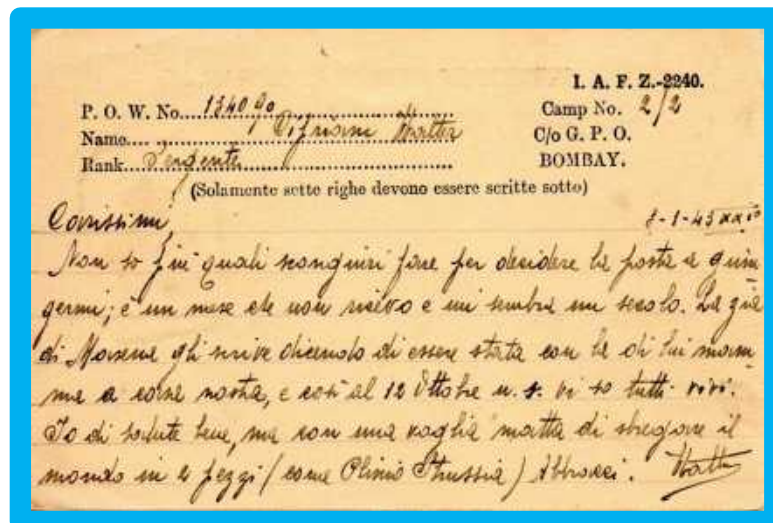 I. A. F. Z.-2240.
P. O. W. No. 134090 Camp No. 2/2
Name Walter C/o G. P. O.
Rank Sergente BOMBAY.
(Solamente sette righe devono essere scritte sotto)
Carissimi,
Non so più quali scongiuri fare per decidere la posta a giun
germi; è un mese che non ricevo e mi sembra un secolo. La zia
di gli scrive dicendo di essere stata con la di lui mam
ma a casa nostra, e così al 12 Ottobre u. s. vi so tutti vivi.
Io di salute bene, ma con una voglia matta di il
mondo in 2 pezzi (come Plinio) Abbracci. Walter